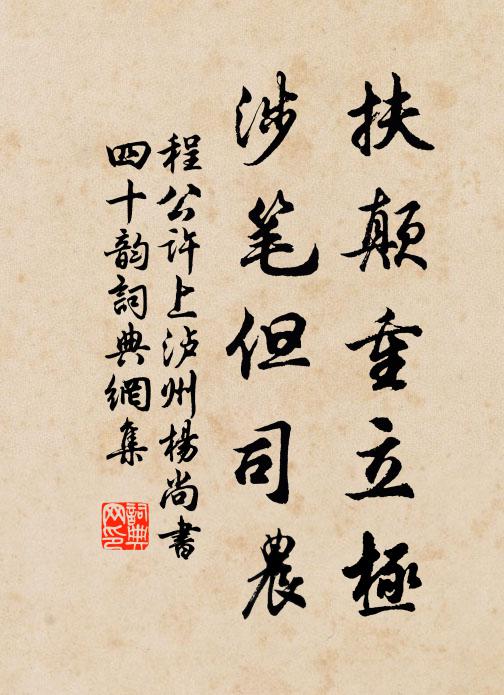 扶颠重立极
涉笔但司农
程公许上泸州杨尚书
四十韵词典网集
词典网印